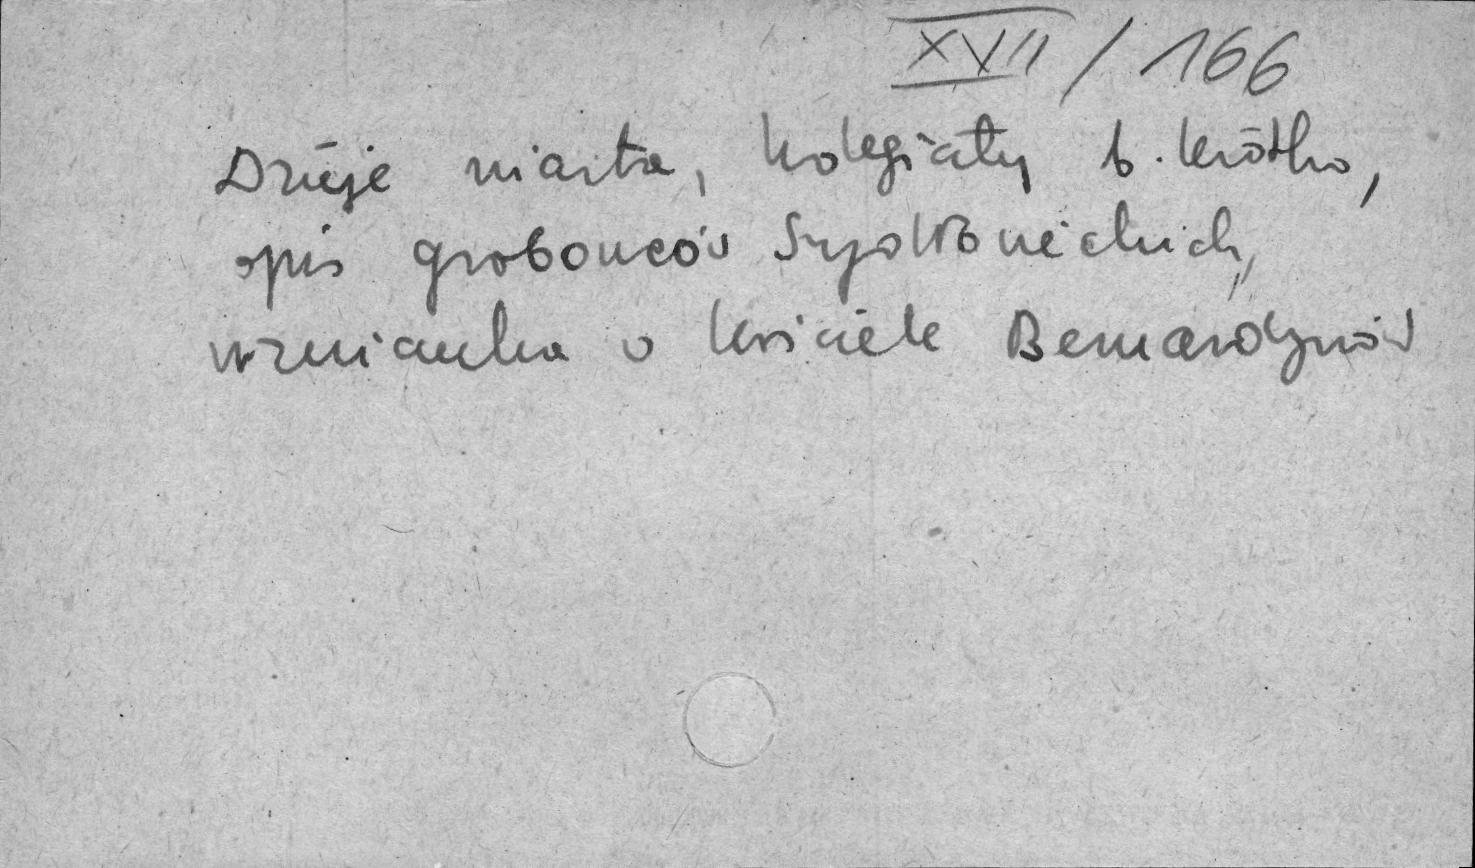 XVII / 166
Dzieje miasta, kolegiaty b. krótko,
opis grobowców Szydłowieckich,
wzmianka o kościele Bernardynów